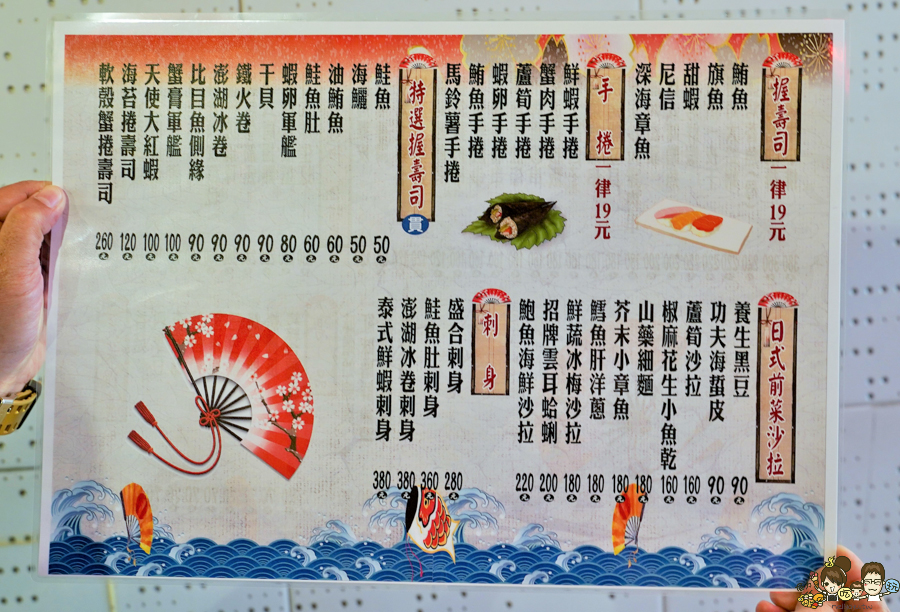 握壽司 一律19元
鮪魚
旗魚
甜蝦
尼信
深海章魚
手捲 一律19元
鮮蝦手捲
蟹肉手捲
蘆筍手捲
蝦卵手捲
鮪魚手捲
馬鈴薯手捲
特選握壽司 貫
鮭魚 50元
海鱺 50元
油鮪魚 60元
鮭魚肚 60元
蝦卵軍艦 80元
干貝 90元
鐵火卷 90元
澎湖冰卷 90元
比目魚側緣 90元
蟹膏軍艦 100元
天使大紅蝦 100元
海苔捲壽司 120元
軟殼蟹捲壽司 260元
日式前菜沙拉
養生黑豆 90元
功夫海蜇皮 90元
蘆筍沙拉 160元
椒麻花生小魚乾 160元
山藥細麵 180元
芥末小章魚 180元
鱈魚肝洋蔥 180元
鮮蔬冰梅沙拉 180元
招牌雲耳蛤蜊 200元
鮑魚海鮮沙拉 220元
刺身
盛合刺身 280元
鮭魚肚刺身 360元
澎湖冰卷刺身 380元
泰式鮮蝦刺身 380元